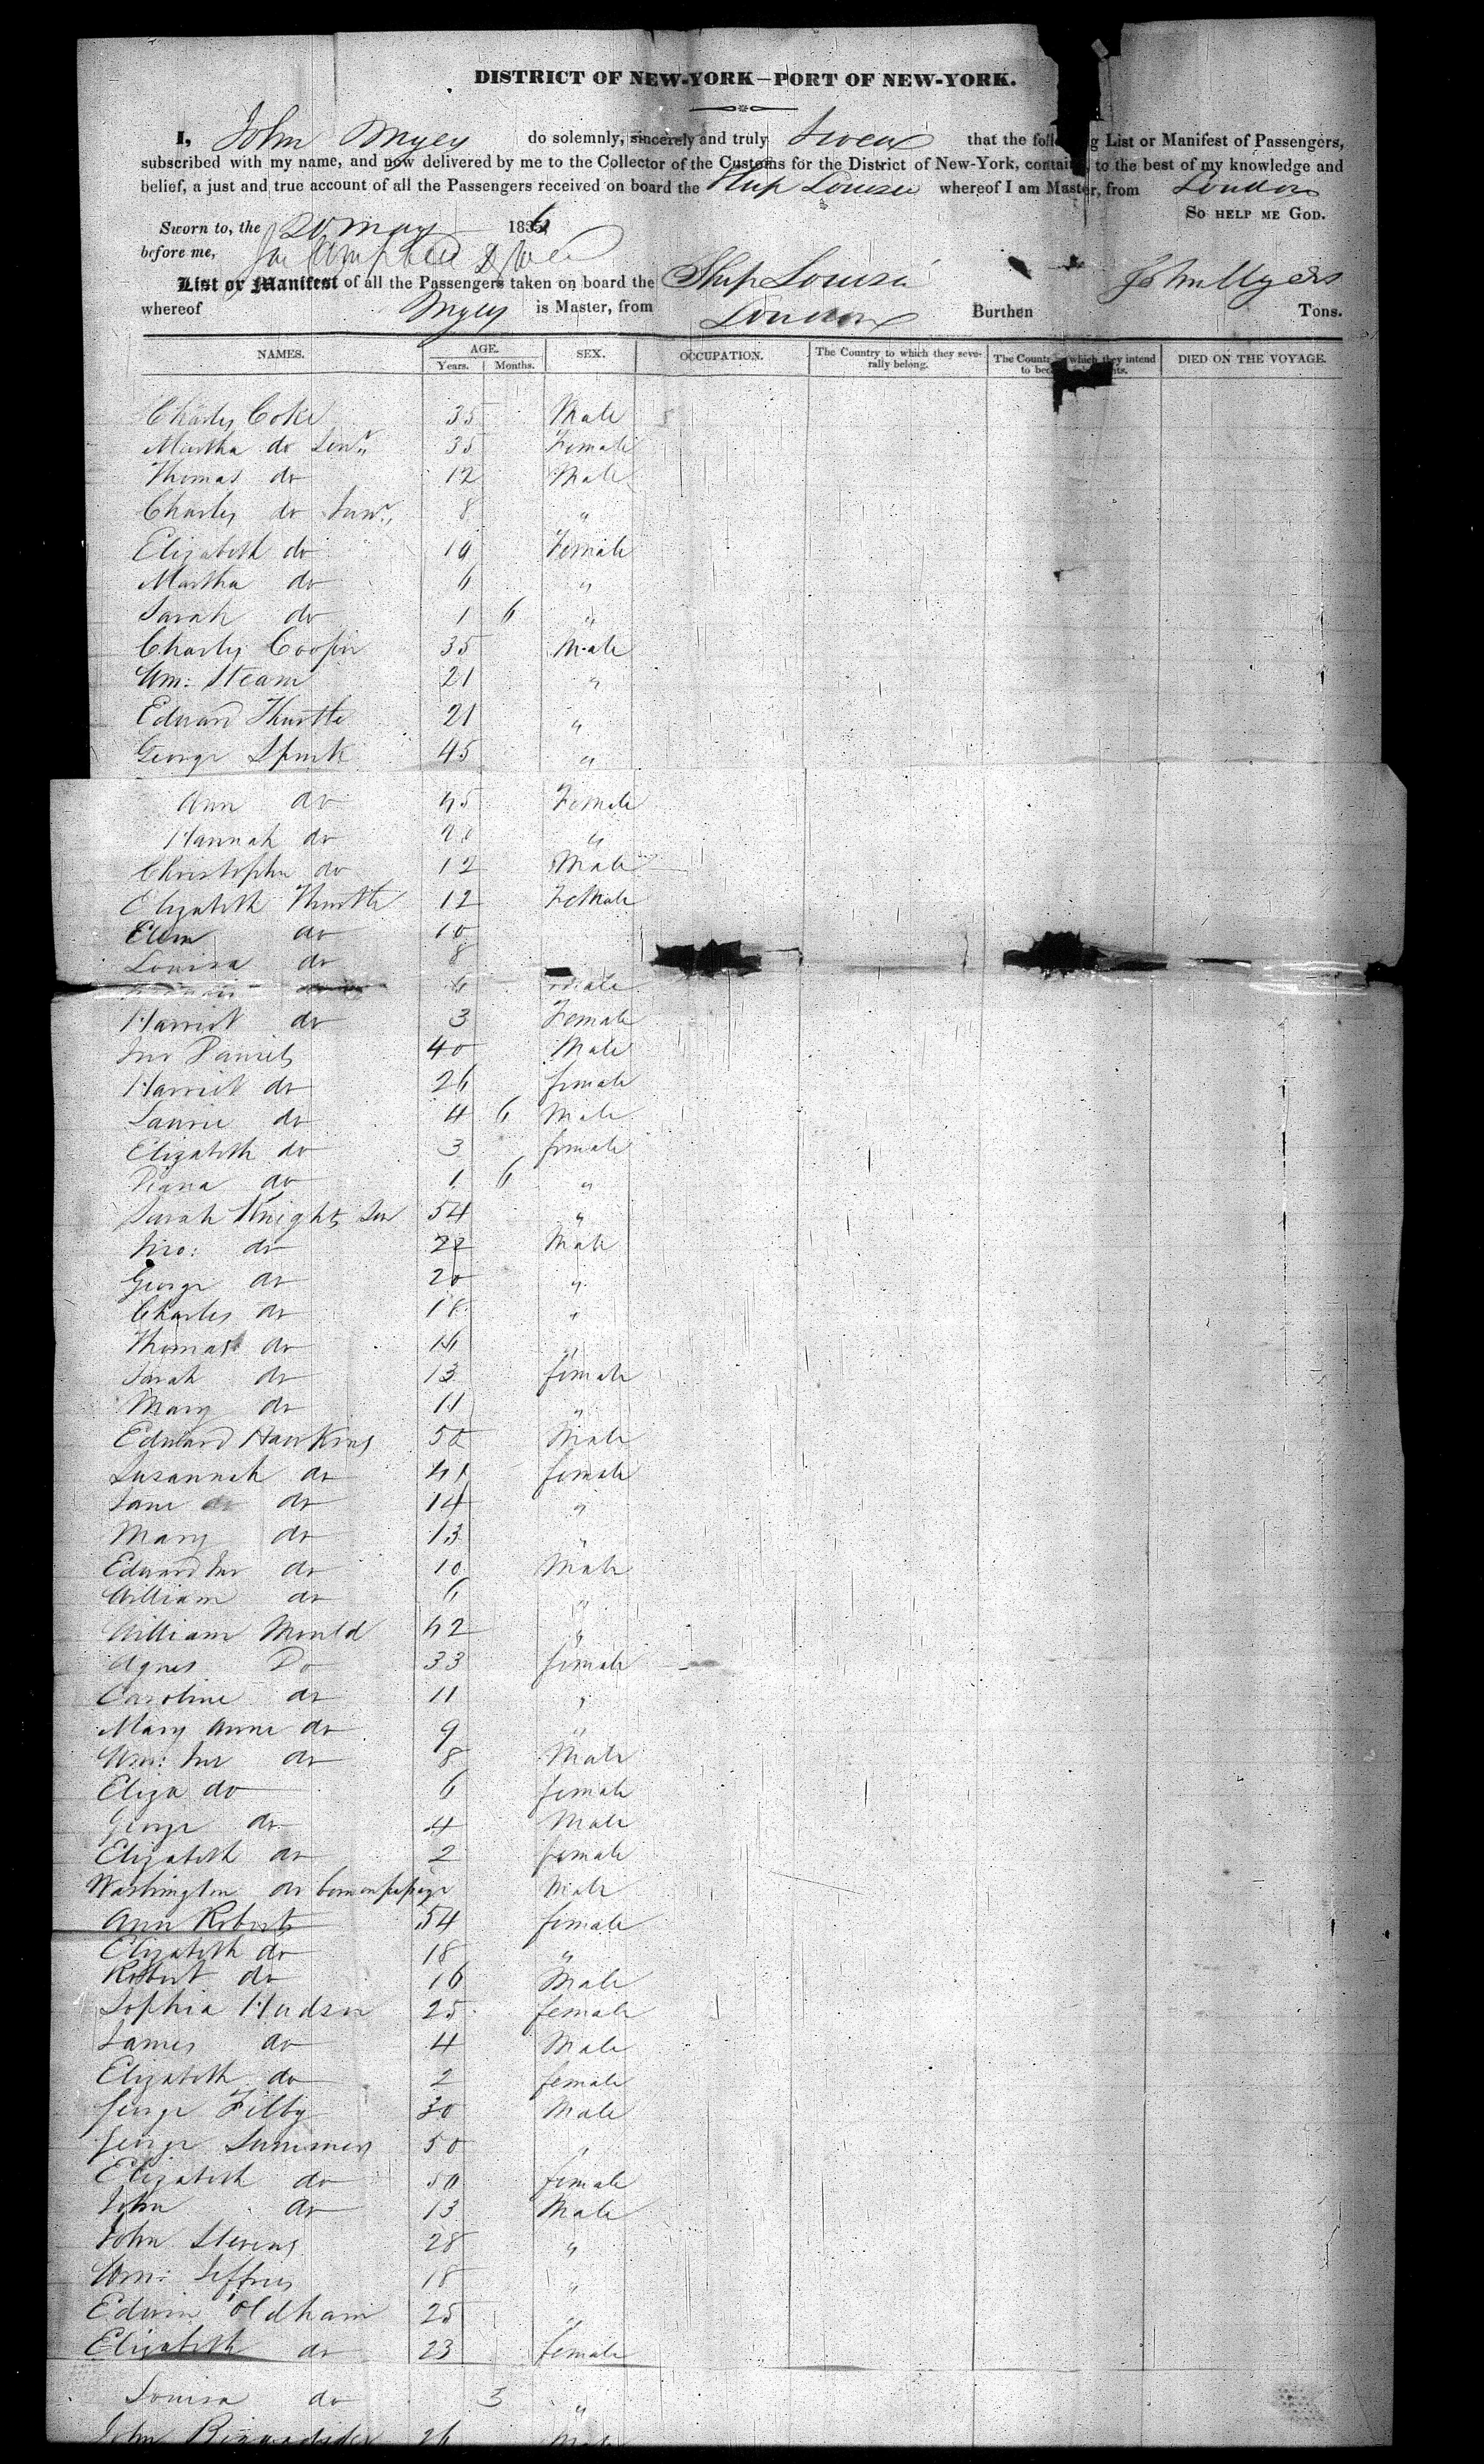 DISTRICT OF NEW-YORK—PORT OF NEW-YORK.
I, John Myers do solemnly, sincerely and truly Swear that the following List or Manifest of Passengers,
subscribed with my name, and now delivered by me to the Collector of the Customs for the District of New-York, contains, to the best of my knowledge and
belief, a just and true account of all the Passengers received on board the Ship Louisa whereof I am Master, from London
SO HELP ME GOD.
Sworn to, the 20 May 1836
before me,
John Myers
List or Manifest of all the Passengers taken on board the Ship Louisa
whereof Myers is Master, from London Burthen Tons.
NAMES. AGE. SEX. OCCUPATION. The Country to which they severally belong. The Country which they intend to become inhabitants. DIED ON THE VOYAGE.
Years. Months.
Charles Coke 35 Male
Martha do Senr 35 Female
Thomas do 12 Male
Charles do Junr 8 "
Elizabeth do 10 Female
Martha do 6 "
Sarah do 1 6 "
Charles Cooper 35 Male
Wm: Steam 21 "
Edward Thurtle 21 "
George Spink 45 "
Ann do 45 Female
Hannah do "
Christopher do 12 Male
Elizabeth Thurtle 12 Female
Ellen do 10
Louisa do 8
6 male
Harriet do 3 Female
Jno Daniels 40 Male
Harriet do 26 female
do 4 6 Male
Elizabeth do 3 female
Diana do 1 6 "
Sarah Knights Sen 54 "
Jno: do 22 Male
George do 20 "
Charles do 18 "
Thomas do "
Sarah do 13 female
Mary do 11 "
Edward Hawkins 50 Male
Susannah do 41 female
Jane do 14 "
Mary do 13 "
Edward Jnr do 10 Male
William do 6 "
William Mould 42 "
Agnes Do 33 female
Caroline do 11 "
Mary Anne do 9 "
Wm: Jnr do 8 Male
Eliza do 6 female
George do 4 Male
Elizabeth do 2 female
Washington do born on passage Male
Ann Roberts 54 female
Elizabeth do 18 "
Robert do 16 Male
Sophia Hudson 25 female
James do 4 Male
Elizabeth do 2 female
George Filby 30 Male
George Summers 50 "
Elizabeth do 50 female
John do 13 Male
John Stevens 28 "
Wm: Jeffries 18 "
Edwin Oldham 25 "
Elizabeth do 23 female
Louisa do 3 "
John 26 Male